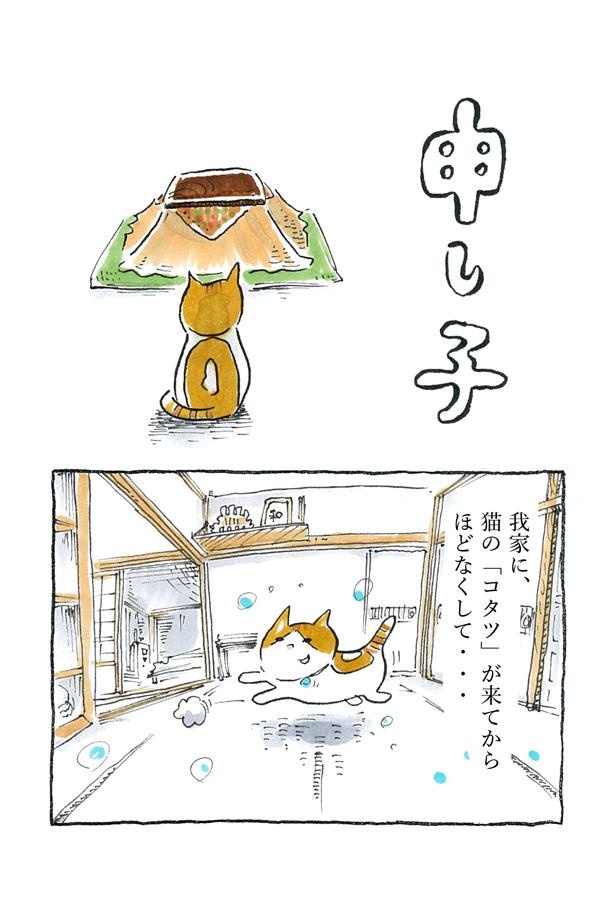 申し子
我家に、
猫の「コタツ」が来てから
ほどなくして・・・